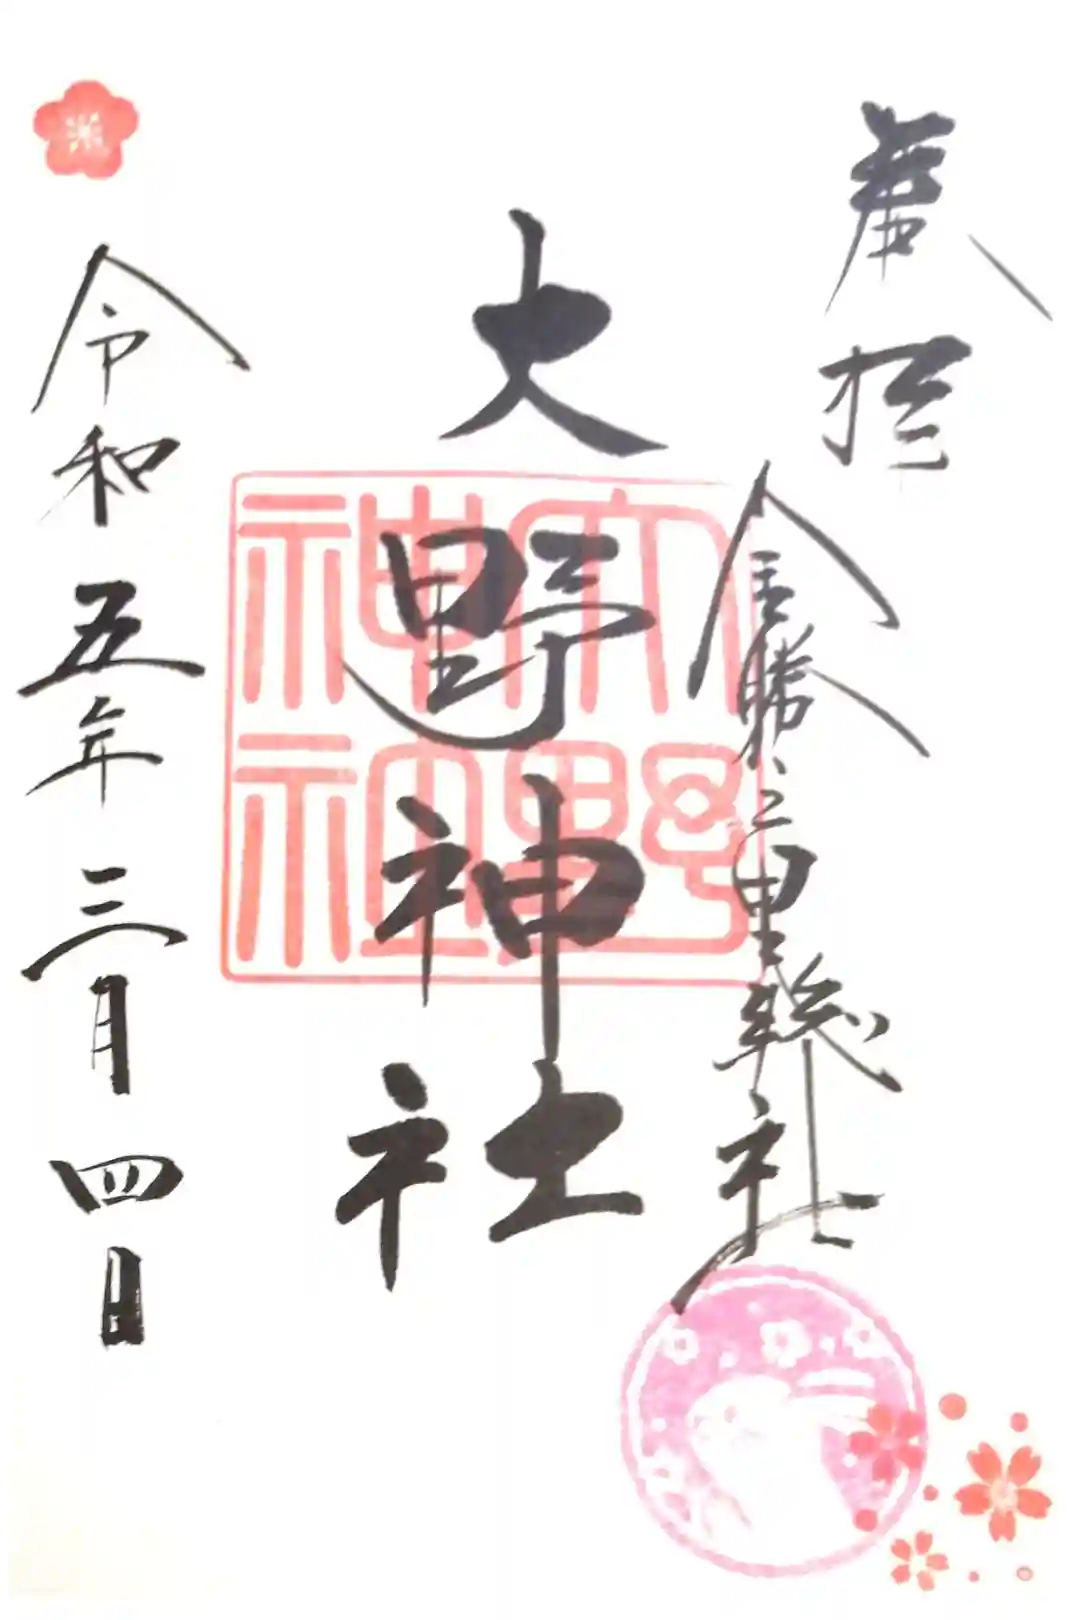 奉拝
金勝之里総社
大野神社
大野
神社
令和五年三月四日